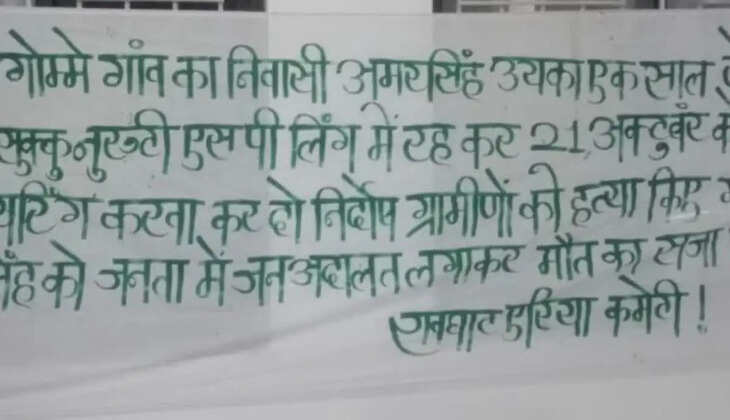 गोम्मे गांव का निवासी अमरसिंह उयका एक साल
नुरुटी एस पी लिंग में रह कर 21 अक्टुबंर
करवा कर दो निर्दोष ग्रामीणों की हत्या किए
को जनता में जन अदालत लगाकर मौत का सजा
एरिया कमेटी !